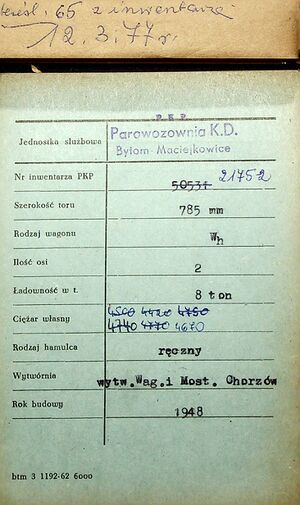 skreśl. 65 z inwentarza
12.3.77 r.
P K P
Jednostka służbowa Parowozownia K.D.
Bytom-Maciejkowice
Nr inwentarza PKP 50531 21752
Szerokość toru 785 mm
Rodzaj wagonu Wh
Ilość osi 2
Ładowność w t. 8 ton
Ciężar własny 4500 4420 4750
4740 4770 4670
Rodzaj hamulca ręczny
Wytwórnia wytw.Wag.i Most. Chorzów
Rok budowy 1948
btm 3 1192-62 6000